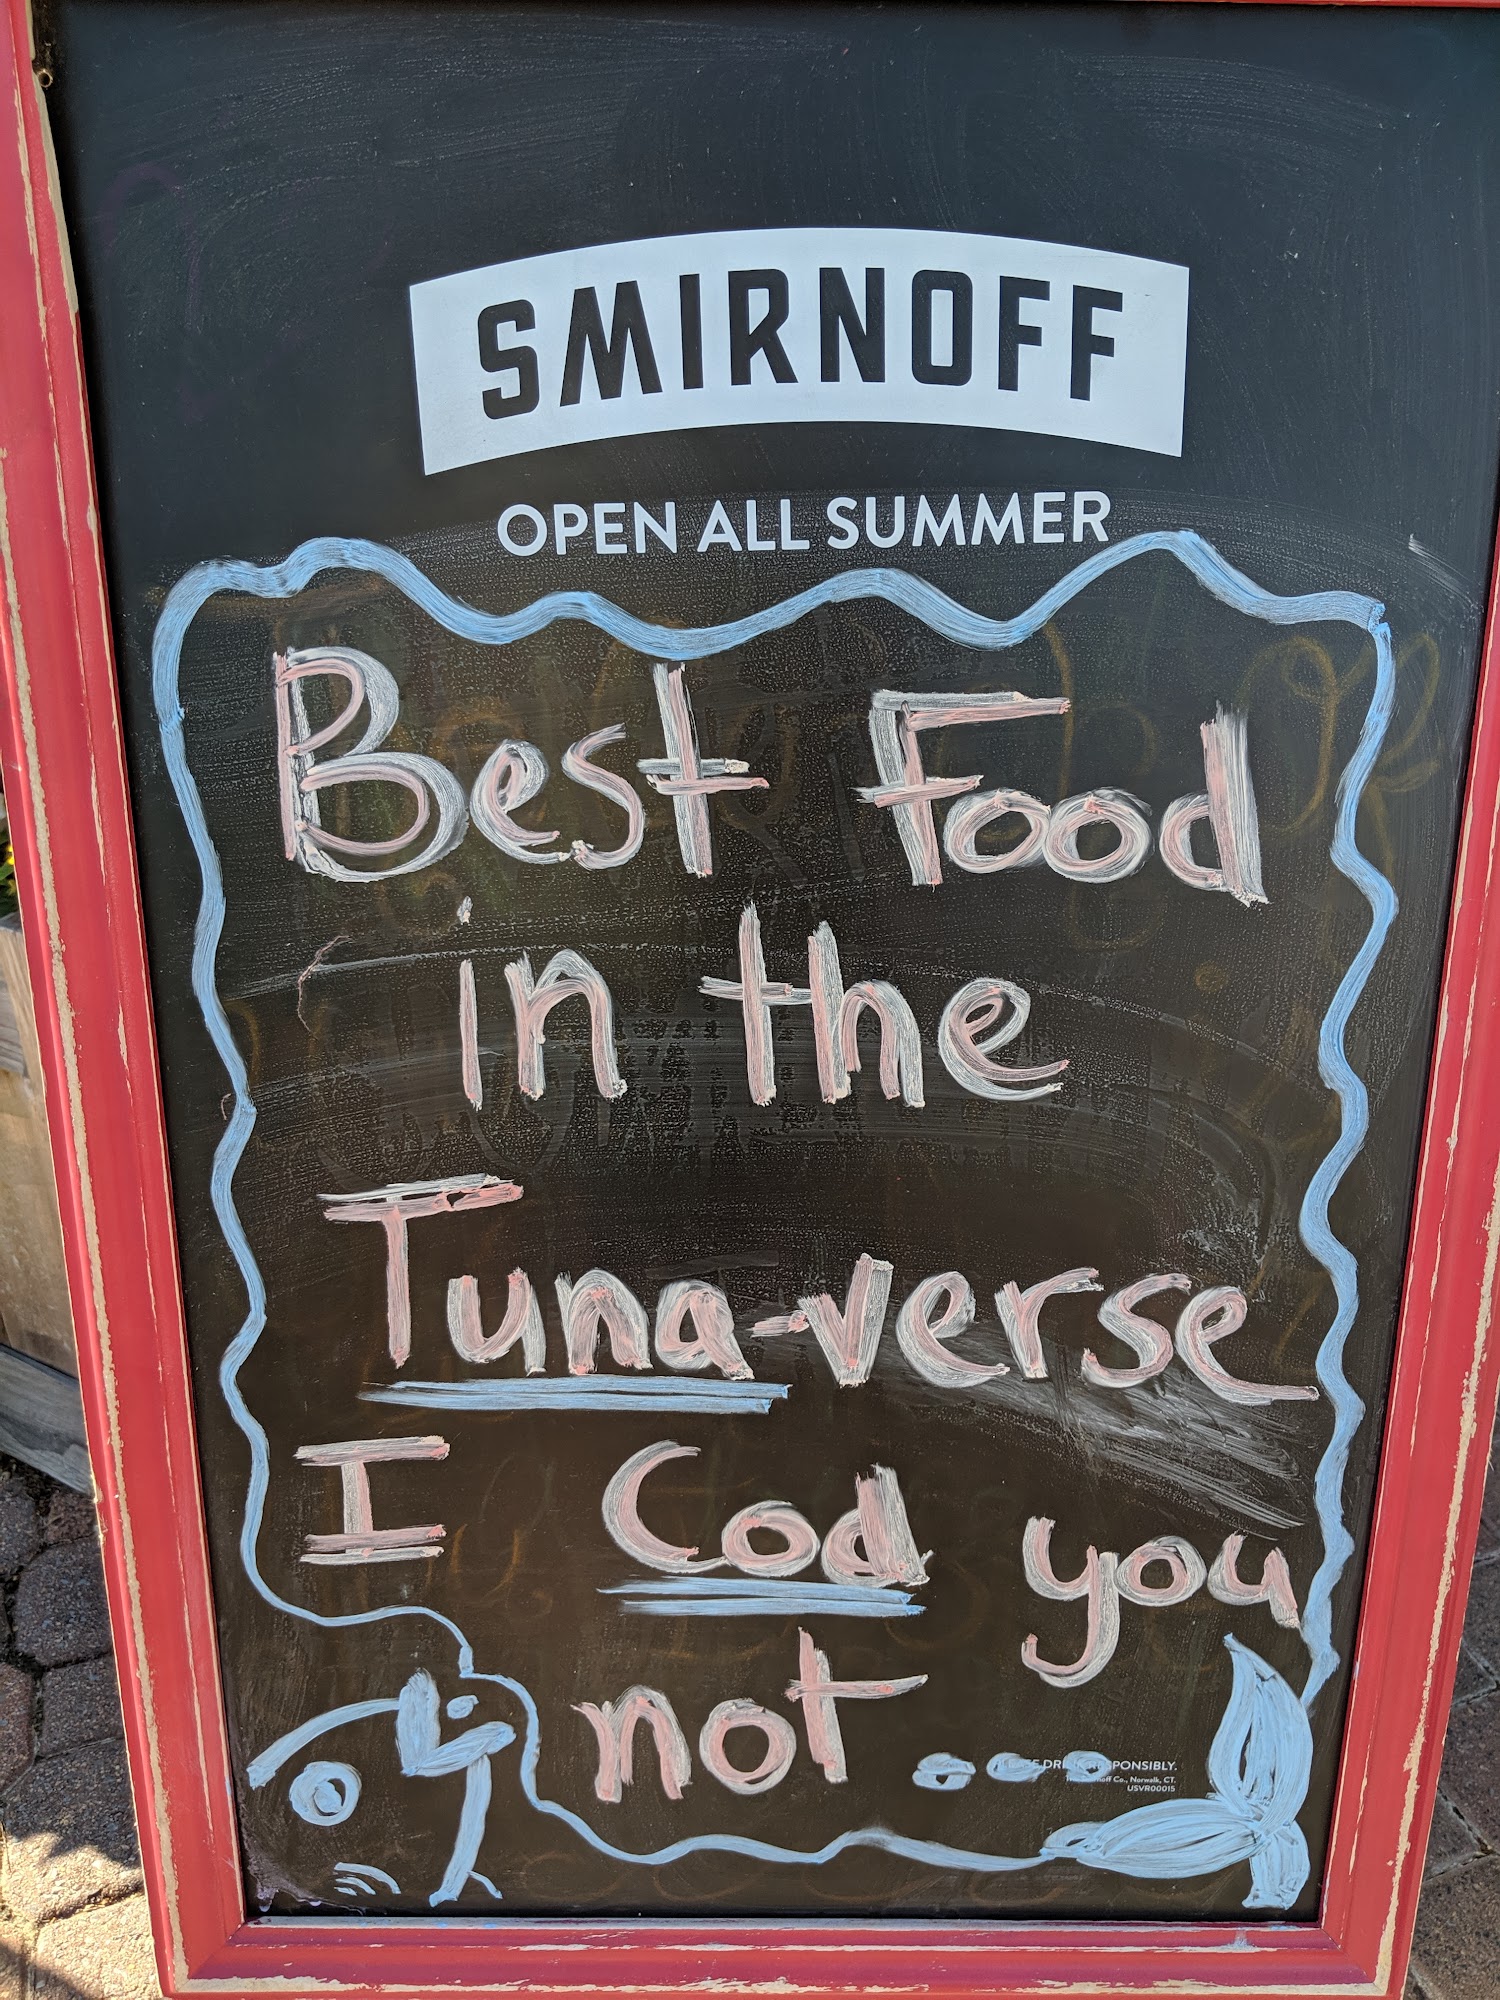 SMIRNOFF
OPEN ALL SUMMER
Best Food
in the
Tuna-verse
I Cod you
not...
DRINK RESPONSIBLY.
Co., Norwalk, CT.
USVR00015